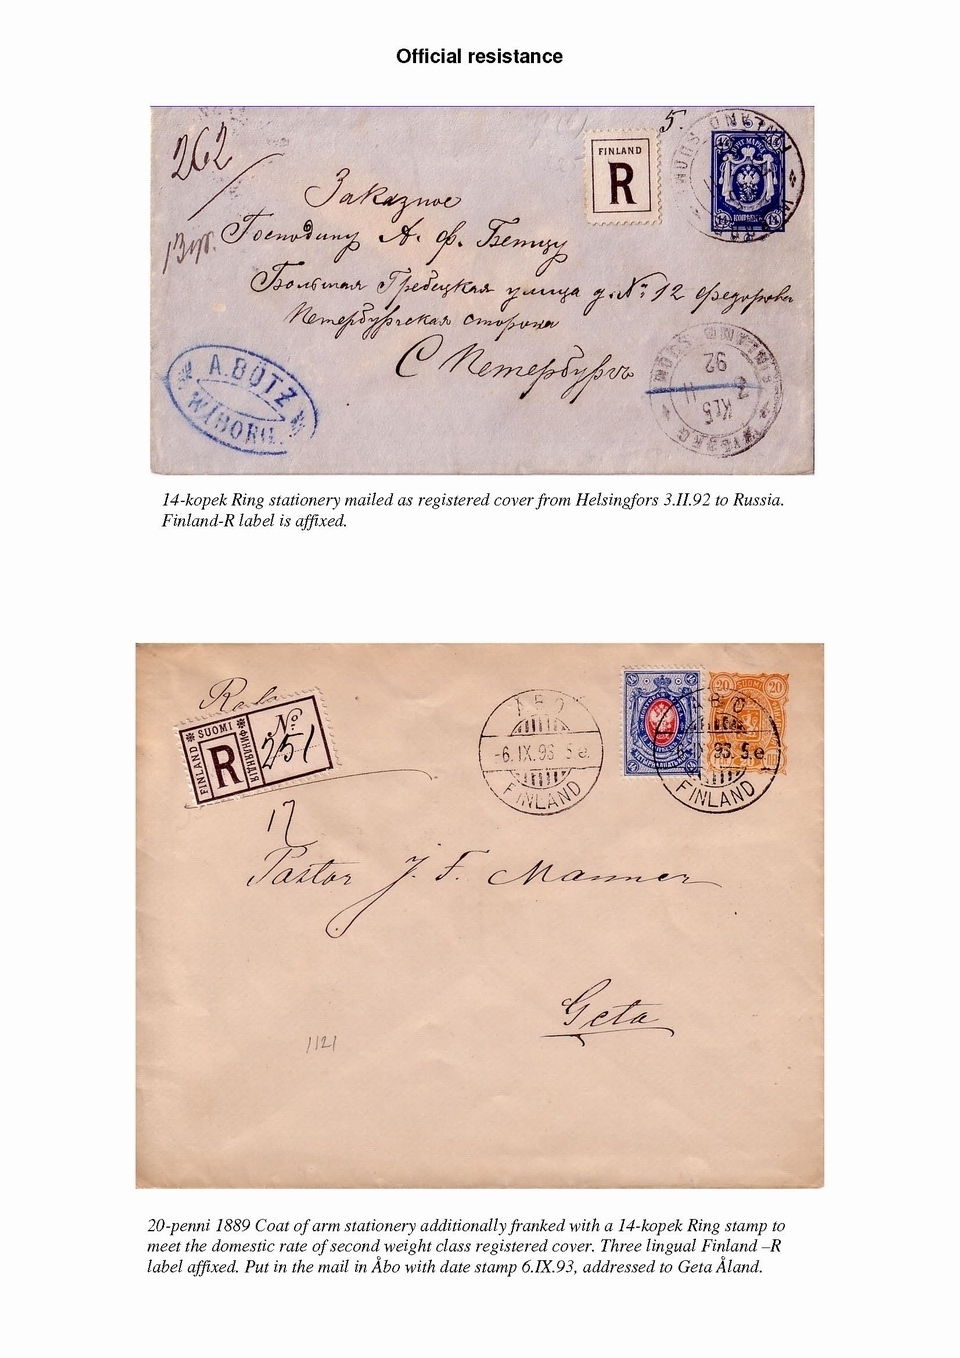 Official resistance
262
5.
FINLAND
R
Заказное
Господину А. Ф. Бетцу
Большая Гребецкая улица д. № 12 Федорова
Петербургская сторона
С Петербургъ
A. BÖTZ
WIBORG.
92
KL5
14-kopek Ring stationery mailed as registered cover from Helsingfors 3.II.92 to Russia.
Finland-R label is affixed.
FINLAND SUOMI ФИНЛЯНДІЯ
R
№ 251
20 SUOMI 20
ÅBO
-6.IX.93 5 e.
FINLAND
ÅBO
93. 5 e
FINLAND
17
Pastor J. F. Manner
Geta
1121
20-penni 1889 Coat of arm stationery additionally franked with a 14-kopek Ring stamp to
meet the domestic rate of second weight class registered cover. Three lingual Finland –R
label affixed. Put in the mail in Åbo with date stamp 6.IX.93, addressed to Geta Åland.